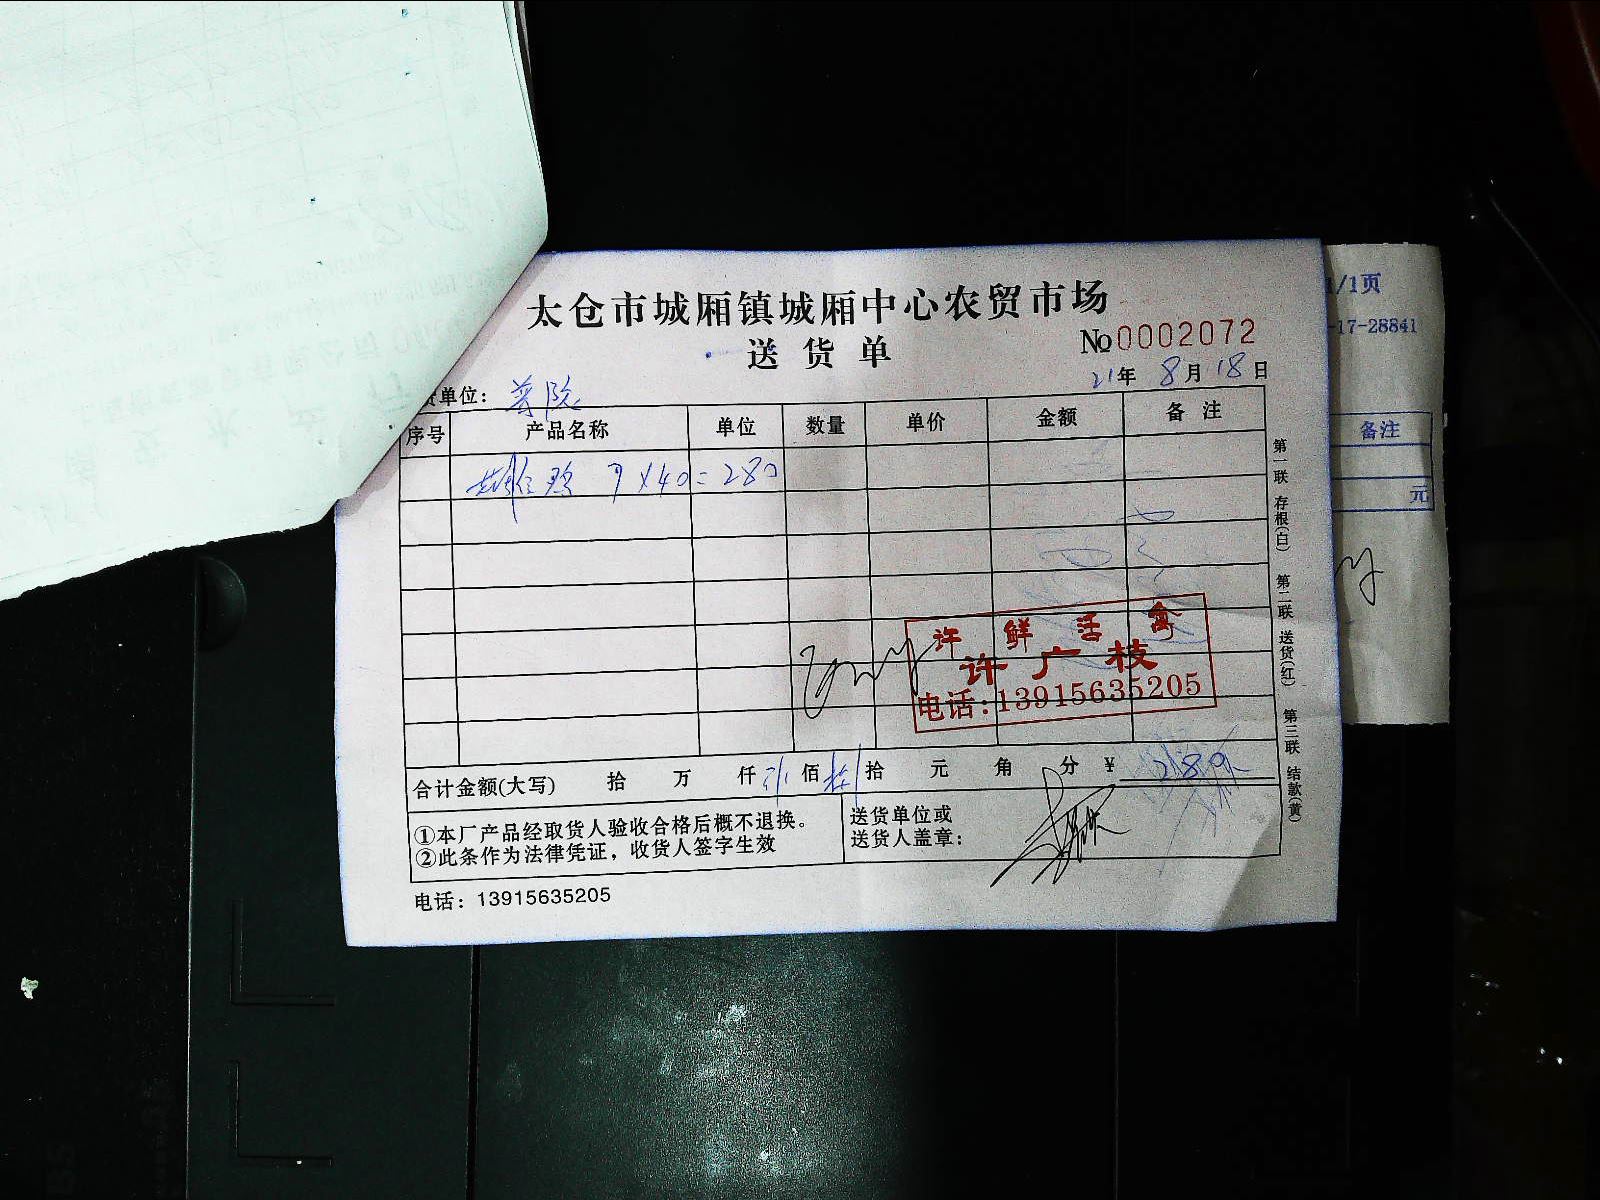 太仓市城厢镇城厢中心农贸市场
送货单
№0002072
21年 8月 18日
单位:
序号 产品名称 单位 数量 单价 金额 备注
7×40=280
许 鲜 活 禽
许广枝
电话:13915635205
合计金额(大写) 拾 万 仟 佰 拾 元 角 分 ¥
①本厂产品经取货人验收合格后概不退换。
②此条作为法律凭证，收货人签字生效
送货单位或
送货人盖章:
电话: 13915635205
第一联 存根(白) 第二联 送货(红) 第三联 结款(黄)
1/1页
-17-28841
备注
元